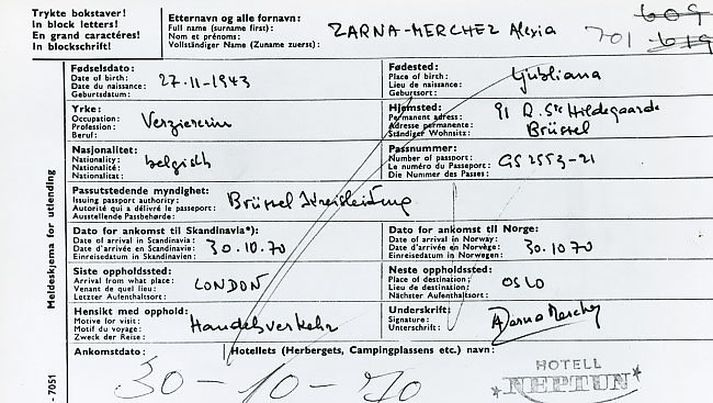 Trykte bokstaver!
In block letters!
En grand caractéres!
In blockschrift!
Etternavn og alle fornavn:
Full name (surname first):
Nom et prénoms:
Vollständiger Name (Zuname zuerst):
ZARNA-MERCHEZ Alexia
609
701 619
Fødselsdato:
Date of birth:
Date du naissance:
Geburtsdatum:
27.11-1943
Fødested:
Place of birth:
Lieu de naissance:
Geburtsort:
Ljubliana
Yrke:
Occupation:
Profession:
Beruf:
Verziererin
Hjemsted:
Permanent adress:
Adresse permanente:
Ständiger Wohnsitz:
91 R. Ste Hildegaarde
Brüssel
Nasjonalitet:
Nationality:
Nationalité:
Nationalitat:
belgisch
Passnummer:
Number of passport:
Le numéro du Passeport:
Die Nummer des Passes:
GS 2553-21
Passutstedende myndighet:
Issuing passport authority:
Autorité qui a délivré le passeport:
Ausstellende Passbehørde:
Brüssel Kreisleitung
Dato for ankomst til Skandinavia*):
Date of arrival in Scandinavia:
Date d'arrivée en Scandinavie:
Einreisedatum in Skandinavien:
30.10.70
Dato for ankomst til Norge:
Date of arrival in Norway:
Date d'arrivée en Norvège:
Einreisedatum in Norwegen:
30.10 70
Siste oppholdssted:
Arrival from what place:
Venant de quel lieu:
Letzter Aufenthaltsort:
LONDON
Neste oppholdssted:
Place of destination:
Lieu de destination:
Nächster Aufenthaltsort:
OSLO
Hensikt med opphold:
Motive for visit:
Motif du voyage:
Zweck der Reise:
Handelsverkehr
Underskrift:
Signature:
Unterschrift:
AZarna Merchez
Ankomstdato:
Hotellets (Herbergets, Campingplassens etc.) navn:
30-10-70
HOTELL
*NEPTUN*
Meldeskjema for utlending
- 7051